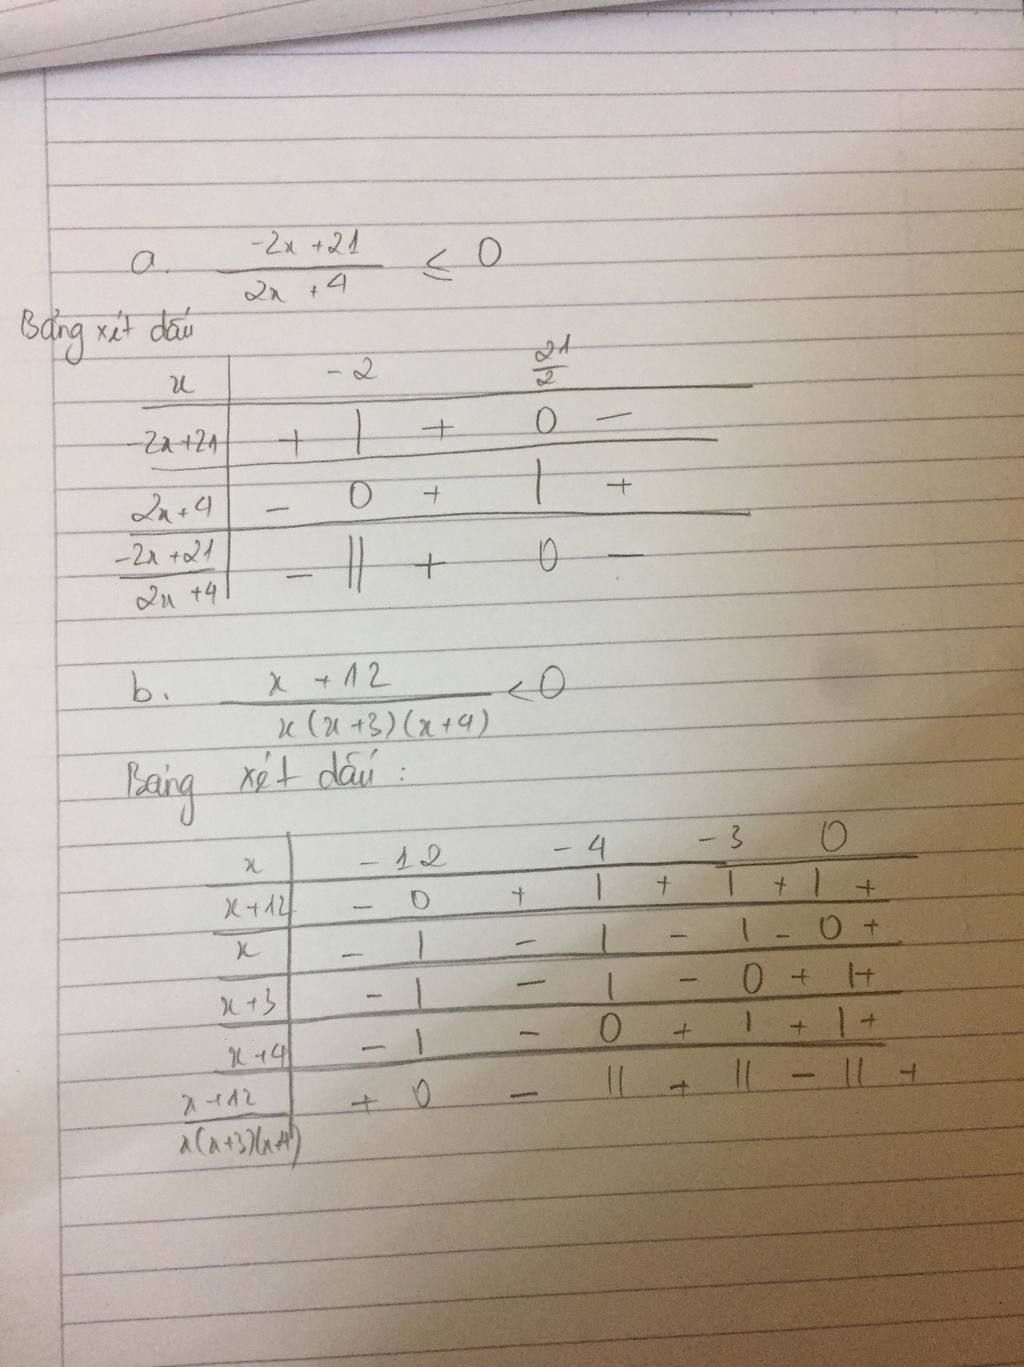 a. -2x+21 / 2x+4 ≤ 0
Bảng xét dấu
x | -2 21/2
-2x+21 | + | + 0 -
2x+4 | - 0 + | +
-2x+21 / 2x+4 | - || + 0 -
b. x+12 / x(x+3)(x+4) < 0
Bảng xét dấu:
x | -12 -4 -3 0
x+12 | - 0 + | + | + | +
x | - | - | - | - 0 +
x+3 | - | - | - 0 + | +
x+4 | - | - 0 + | + | +
x+12 / x(x+3)(x+4) | + 0 - || + || - || +